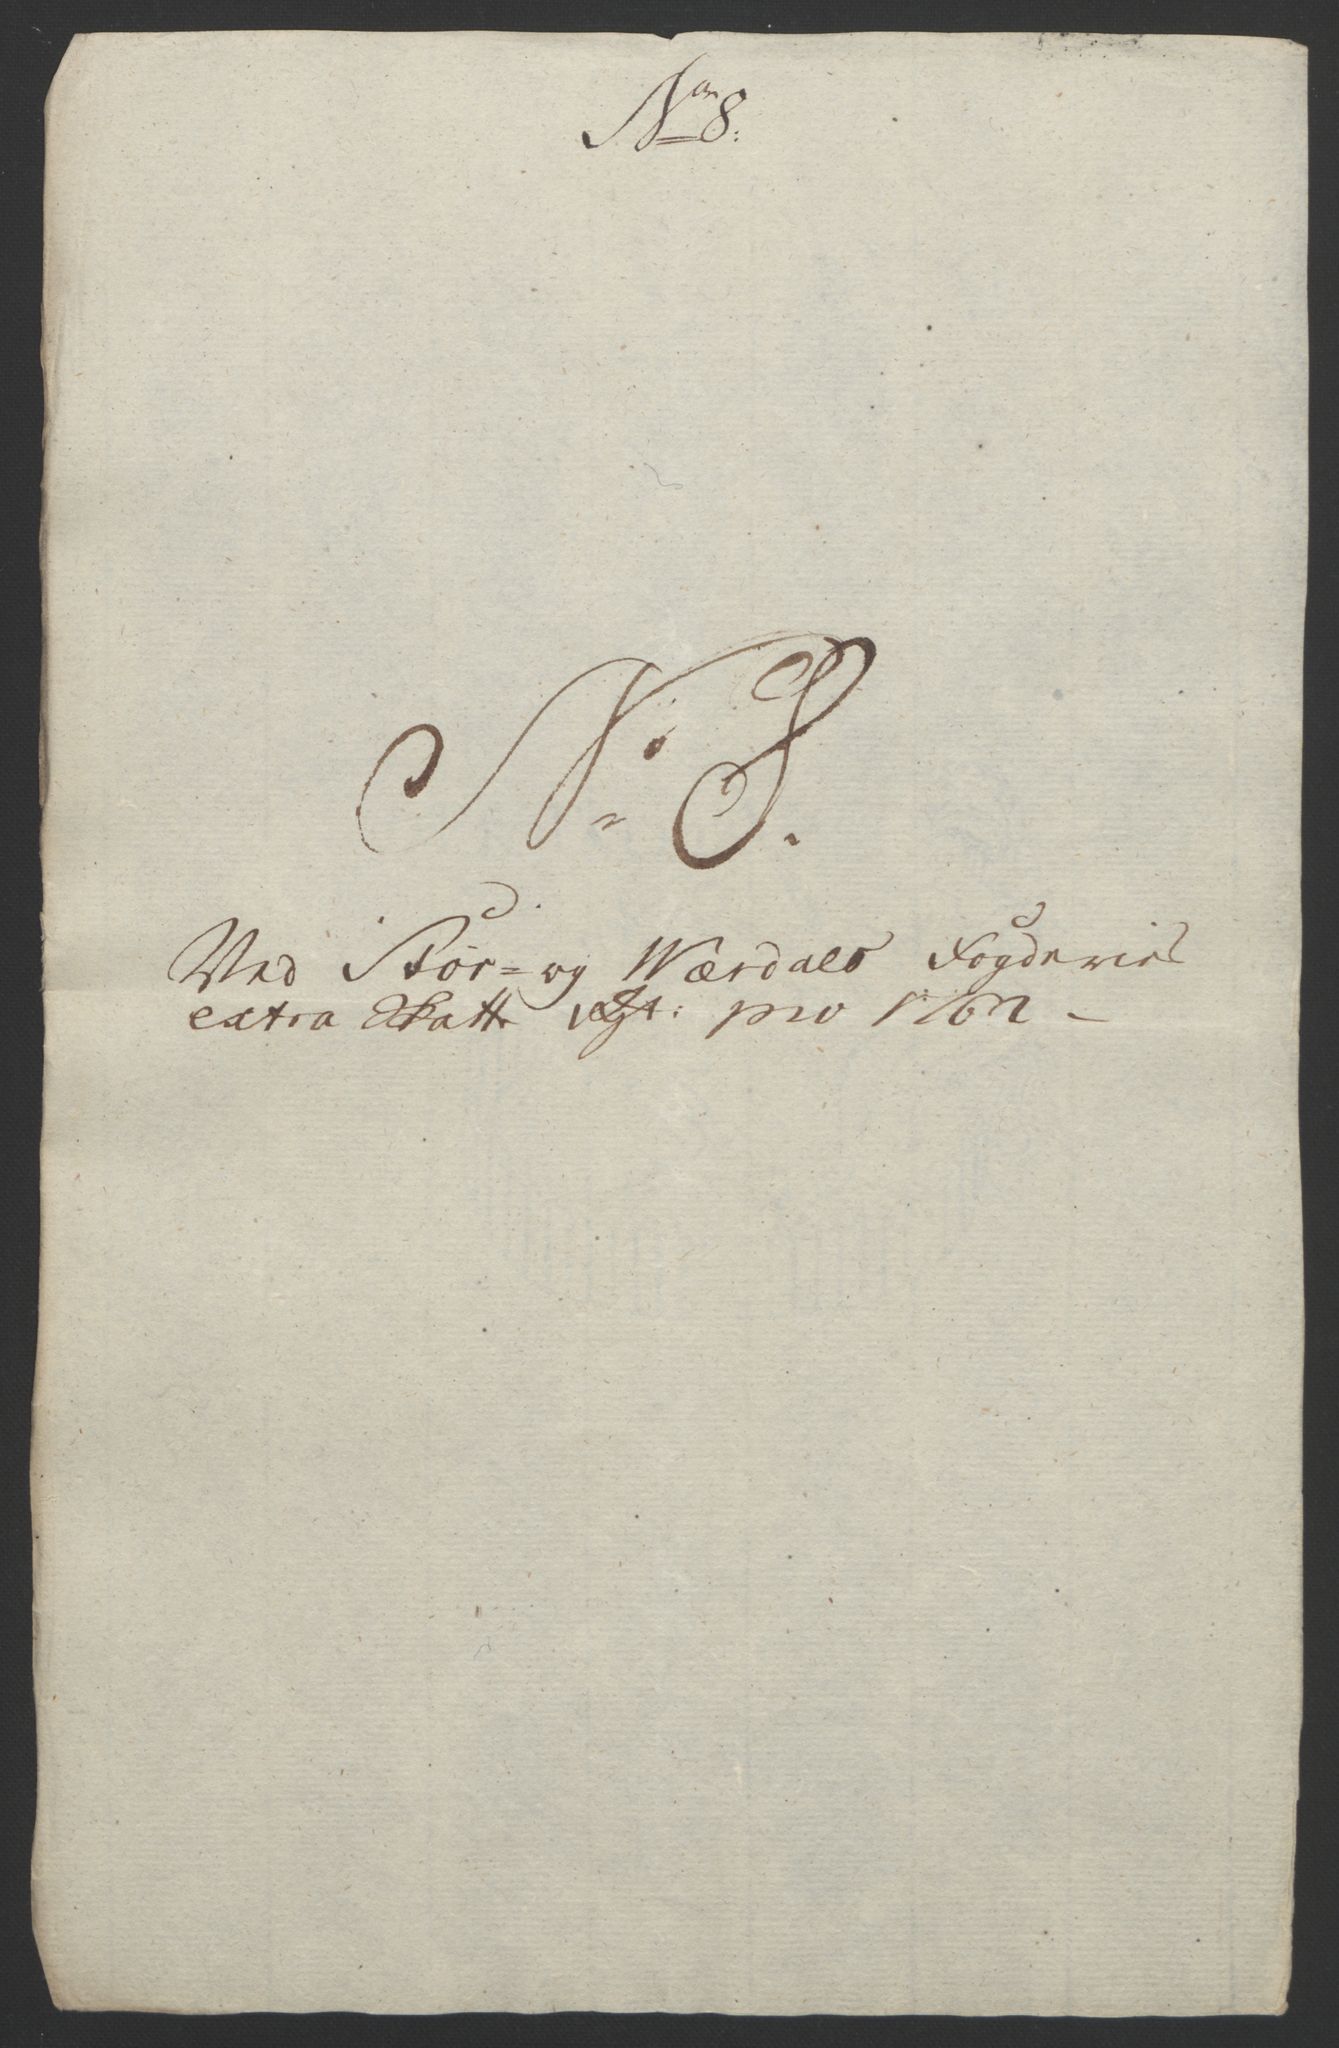 No 8.
No 8.
Ved Stør- og Værdals Fogderies
extra Skatte Rgt: pro 1762 –